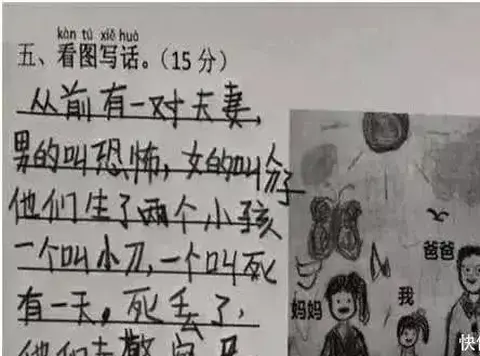 kàn tú xiě huà
五、看图写话。(15分)
从前有一对夫妻，
男的叫恐怖，女的叫分子
他们生了两个小孩
一个叫小刀，一个叫死
有一天，死丢了，
妈妈
我
爸爸